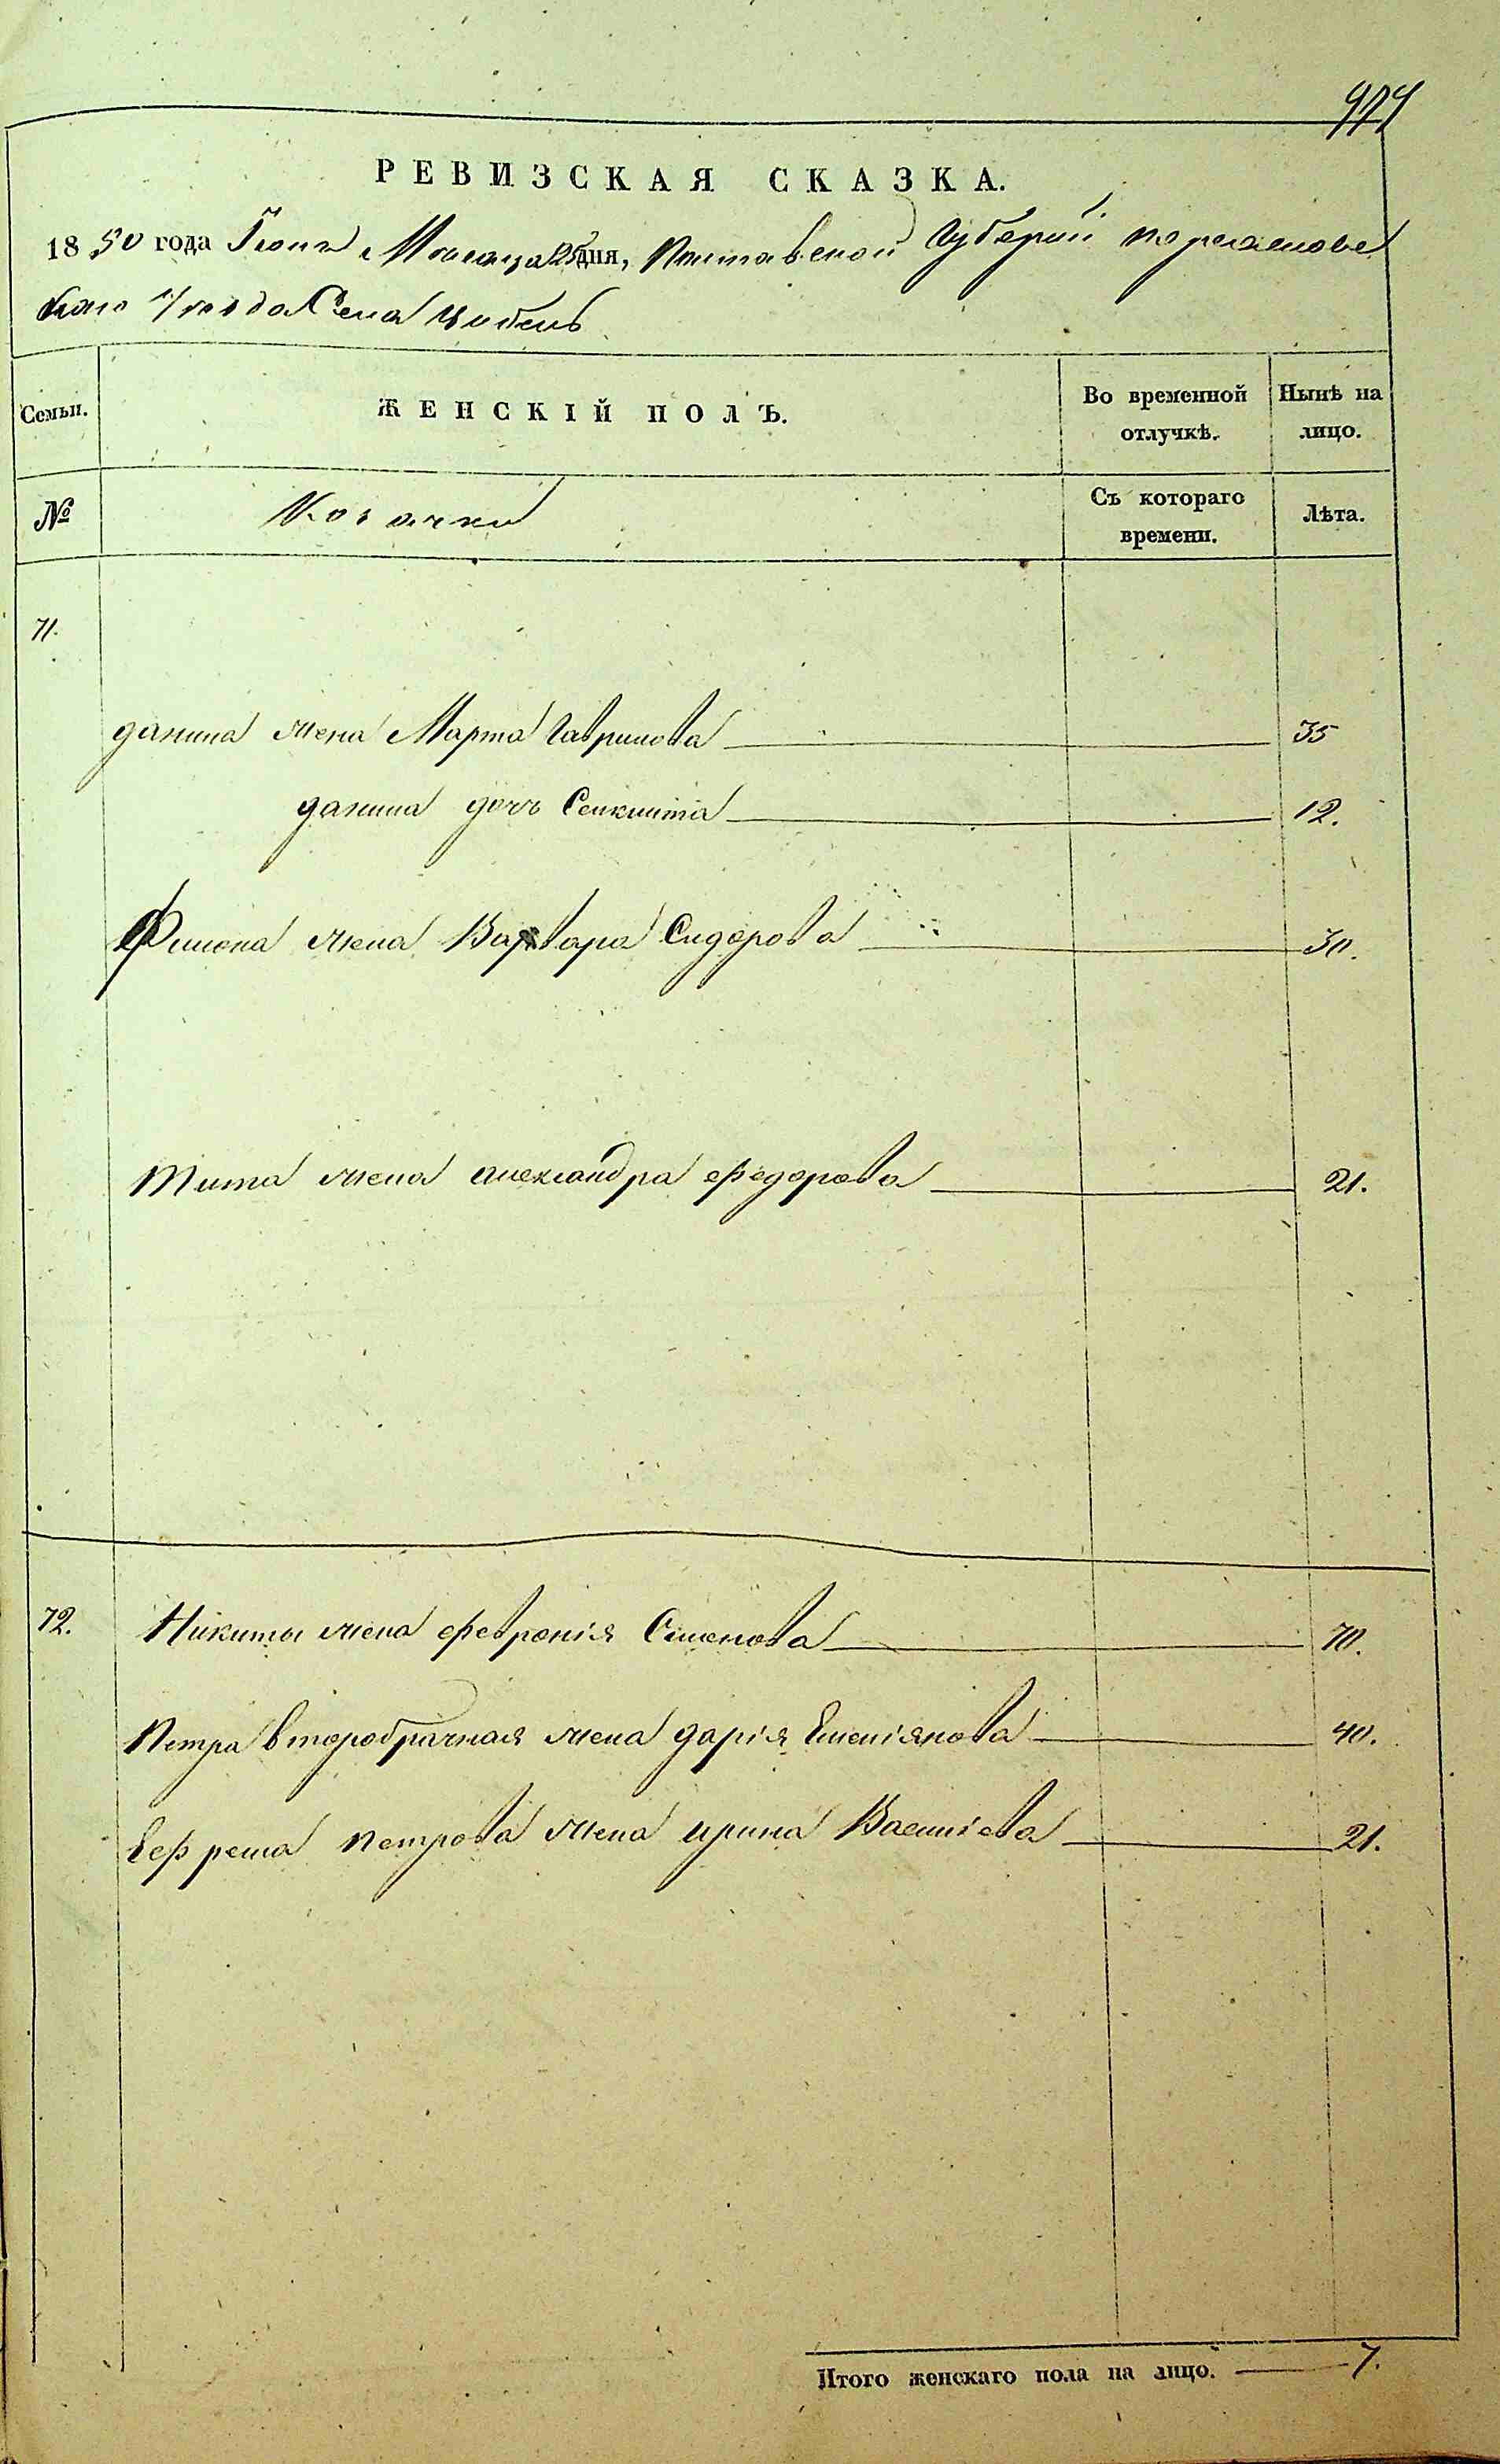 РЕВИЗСКАЯ СКАЗКА.
1850 года Іюня Месяца 25 дня, Полтавской Губерніи переяслов
скаго Уезда Села Цибель
Семьи. ЖЕНСКІЙ ПОЛЪ. Во временной отлучкѣ. Нынѣ на лицо.
№ Козачки Съ котораго времени. Лѣта.
71.
данила жена Марта Гаврилова 35
данила дочь 12.
Филипа жена Варвара Сидорова 30.
Тита жена александра Федорова 21.
72. Никиты жена Февронія Семенова 70.
Петра второбрачная жена дарія Емеліянова 40.
Ефрема Петрова жена ирина Василіева 21.
Итого женскаго пола на лицо. 7.